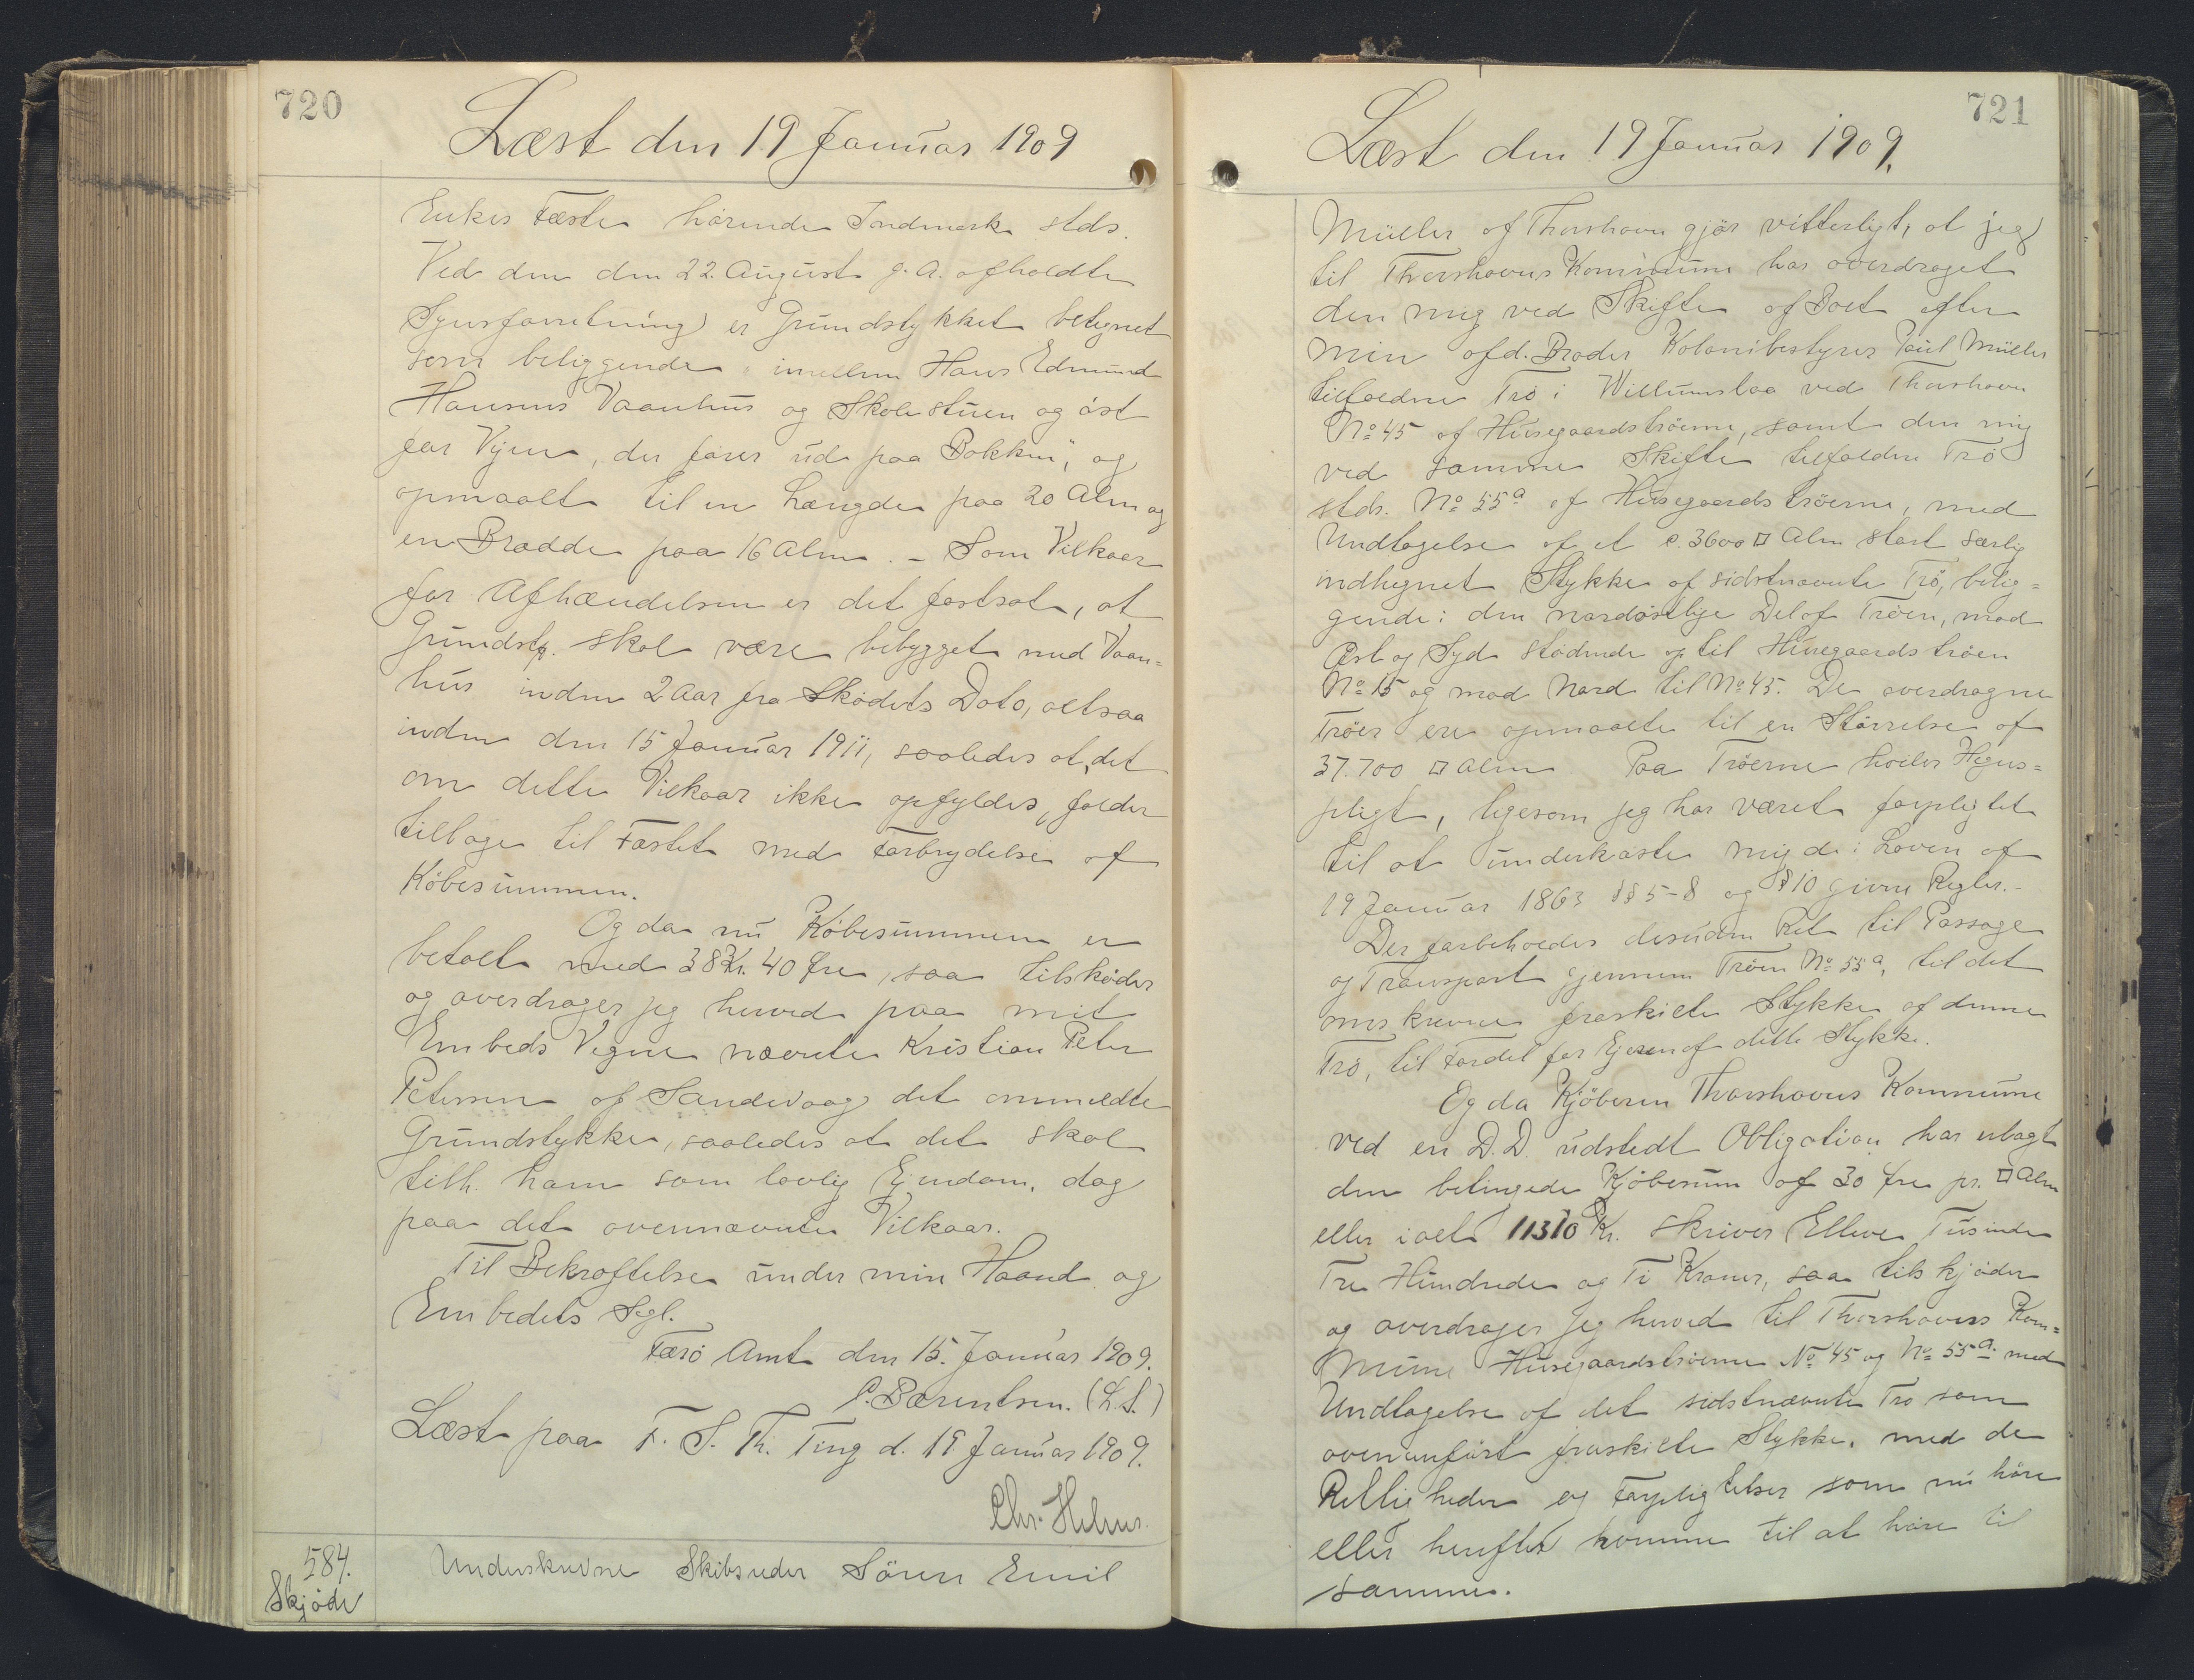 720
Læst den 19 Januar 1909
Enkes Fæste hørende Indmark stds.
Ved den den 22. August f. A. afholdte
Synsforretning er Grundstykket betegnet
som beliggende imellem Hans Edmund
Hansens Vaanhus og Skolestuen og øst
for Vejen, der fører ud paa Bakken, og
opmaalt til en Længde paa 20 Alen og
en Bredde paa 16 Alen. – Som Vilkaar
for Afhændelsen er det fastsat, at
Grundst. skal være bebygget med Vaan=
hus inden 2 Aar fra Skødets Dato, altsaa
inden den 15 Januar 1911, saaledes at det
om dette Vilkaar ikke opfyldes, falder
tilbage til Fæstet med Forbrydelse af
Købesummen.
Og da nu Købesummen er
betalt med 38 Kr. 40 Øre, saa tilskøder
og overdrager jeg herved paa mit
Embeds Vegne nævnte Kristian Peter
Petersen af Sandevaag det ommeldte
Grundstykke, saaledes at det skal
tilh. ham som lovlig Ejendom, dog
paa det ovennævnte Vilkaar.
Til Bekræftelse under min Haand og
Embedets Segl.
Færø Amt den 15. Januar 1909.
C. Bærentsen. (L.S.)
Læst paa F. S. Th. Ting d. 19 Januar 1909.
Chr. Helms.
584.
Skjøde
Underskrevne Skibsreder Sören Emil
721
Læst den 19 Januar 1909.
Müller af Thorshavn gjör vitterligt, at jeg
til Thorshavns Kommune har overdraget
den mig ved Skifte af Boet efter
min afd. Broder Kolonibestyrer Poul Müller
tilfaldne Trö i Willumslaa ved Thorshavn
No 45 af Husegaardströerne, samt den mig
ved samme Skifte tilfaldne Trö
stds. No 55a af Husegaardströerne, med
Undtagelse af et c. 3600 □ Alen stort særlig
indhegnet Stykke af sidstnævnte Trö, belig=
gende i den nordöstlige Del af Tröen, mod
Øst og Syd stödende op til Husegaardströen
No 15 og mod Nord til No 45. De overdragne
Tröer ere opmaalte til en Störrelse af
37.700 □ Alen. Paa Tröerne hviler Hegns=
pligt, ligesom jeg har været forpligtet
til at underkaste mig de i Loven af
19 Januar 1863 §§ 5-8 og § 10 givne Regler. –
Der forbeholdes desuden Ret til Passage
og Transport gjennem Tröen No 55a, til det
omskrevne fraskilte Stykke af denne
Trö, til Fordel for Ejeren af dette Stykke.
Og da Kjöberen Thorshavns Kommune
ved en D.D. udstedt Obligation har erlagt
den betingede Kjöbesum af 30 Øre pr. □ Alen
eller ialt 11310 Kr. skriver Elleve Tusinde
Tre Hundrede og Ti Kroner, saa tilskjøder
og overdrager jeg herved til Thorshavns Kom=
mune Husegaardströerne No 45 og No 55a. med
Undtagelse af det sidstnævnte Trö som
ovenanfört fraskilte Stykke, med de
Rettigheder og Forpligtelser som nu höre
eller herefter komme til at höre til
samme.